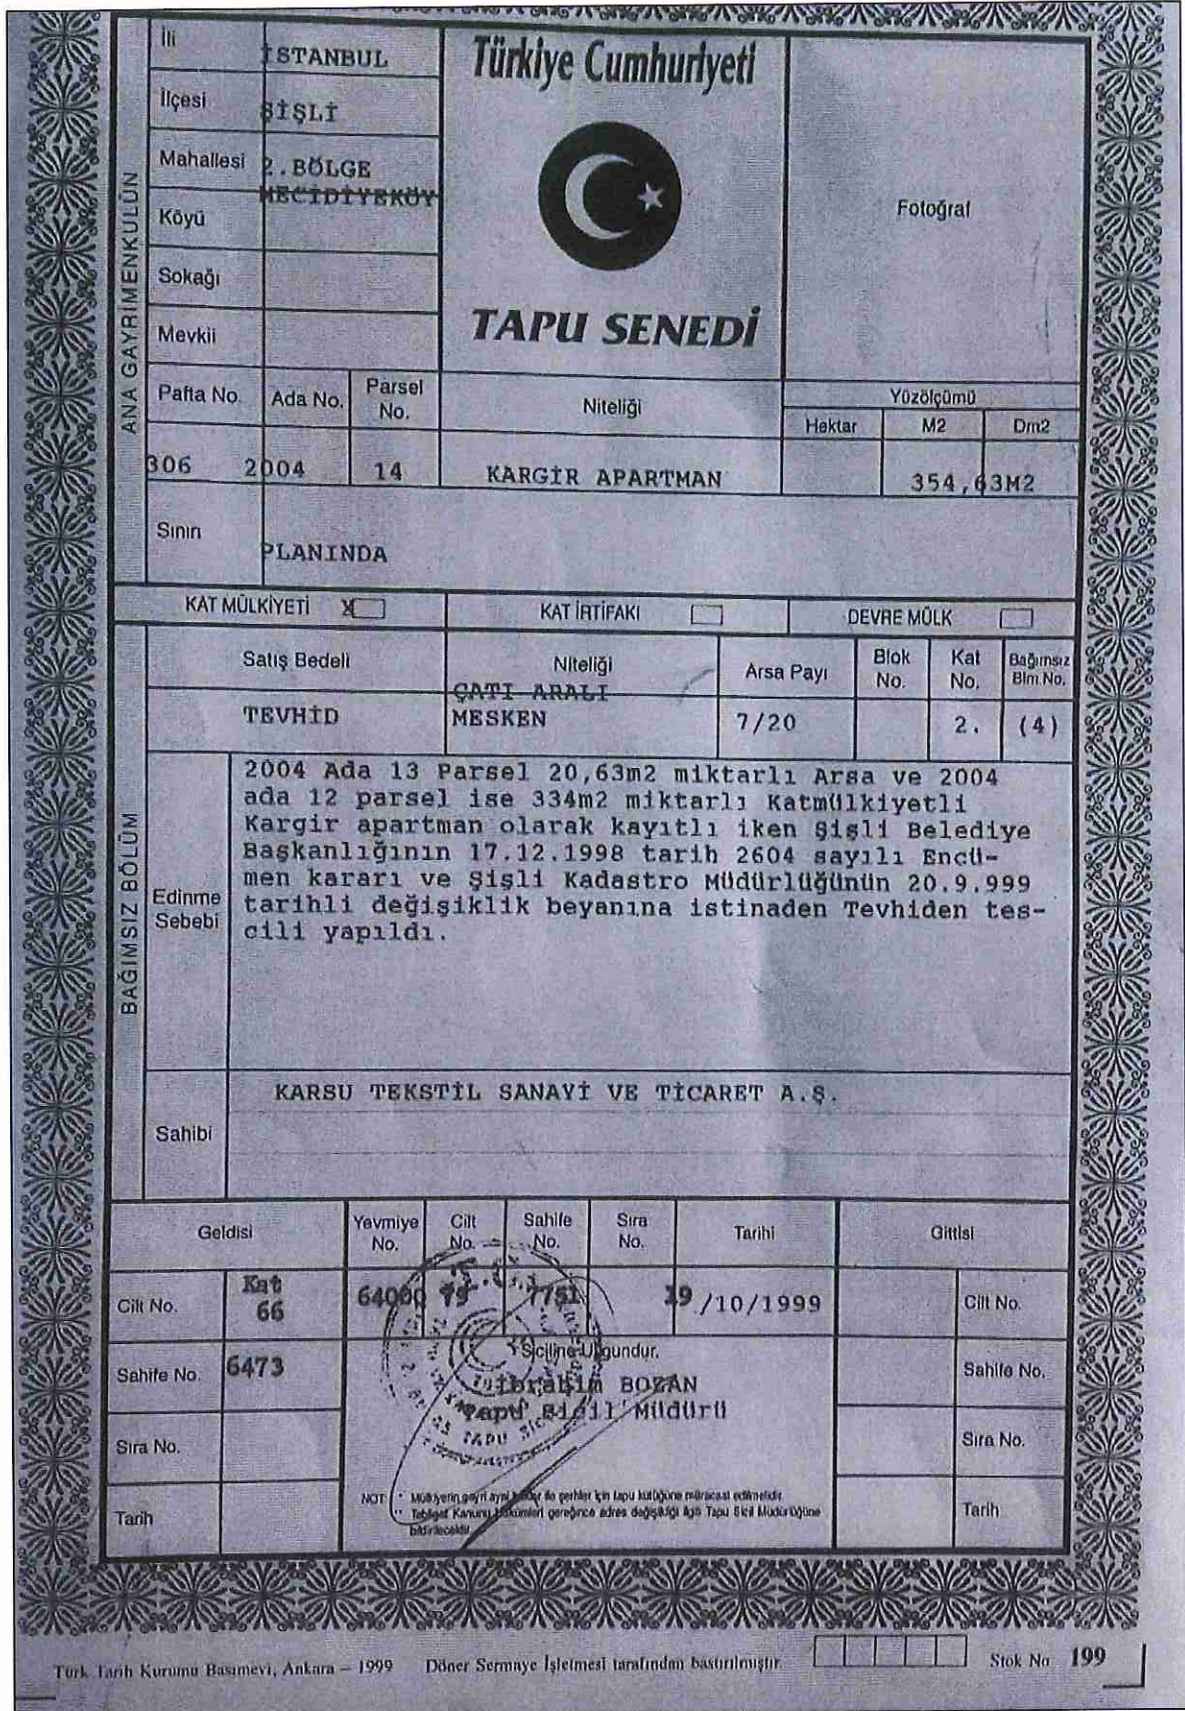 İli İSTANBUL
İlçesi ŞİŞLİ
Mahallesi 2.BÖLGE
MECİDİYEKÖY
Köyü
Sokağı
Mevkii
Türkiye Cumhuriyeti
TAPU SENEDİ
Fotoğraf
ANA GAYRİMENKULÜN
Pafta No. Ada No. Parsel No. Niteliği Yüzölçümü
Hektar M2 Dm2
306 2004 14 KARGİR APARTMAN 354,63M2
Sınırı PLANINDA
KAT MÜLKİYETİ X KAT İRTİFAKI DEVRE MÜLK
BAĞIMSIZ BÖLÜM
Satış Bedeli Niteliği Arsa Payı Blok No. Kat No. Bağımsız Blm.No.
ÇATI ARALI
TEVHİD MESKEN 7/20 2. (4)
Edinme Sebebi
2004 Ada 13 Parsel 20,63m2 miktarlı Arsa ve 2004
ada 12 parsel ise 334m2 miktarlı Katmülkiyetli
Kargir apartman olarak kayıtlı iken Şişli Belediye
Başkanlığının 17.12.1998 tarih 2604 sayılı Encü-
men kararı ve Şişli Kadastro Müdürlüğünün 20.9.999
tarihli değişiklik beyanına istinaden Tevhiden tes-
cili yapıldı.
Sahibi
KARSU TEKSTİL SANAYİ VE TİCARET A.Ş.
Geldisi Yevmiye No. Cilt No. Sahife No. Sıra No. Tarihi Gittisi
Cilt No. Kat 66 64000 79 7751 19/10/1999 Cilt No.
Sahife No. 6473 Siciline Uygundur. Sahife No.
İbrahim BOZAN
Tapu Sicil Müdürü
Sıra No. Sıra No.
Tarih Tarih
NOT: * Mülkiyetin gayri ayni haklar ile şerhler için tapu kütüğüne müracaat edilmelidir.
** Tebligat Kanunu hükümleri gereğince adres değişikliği ilgili Tapu Sicil Müdürlüğüne
bildirilecektir.
Türk Tarih Kurumu Basımevi, Ankara – 1999 Döner Sermaye İşletmesi tarafından bastırılmıştır. Stok No 199